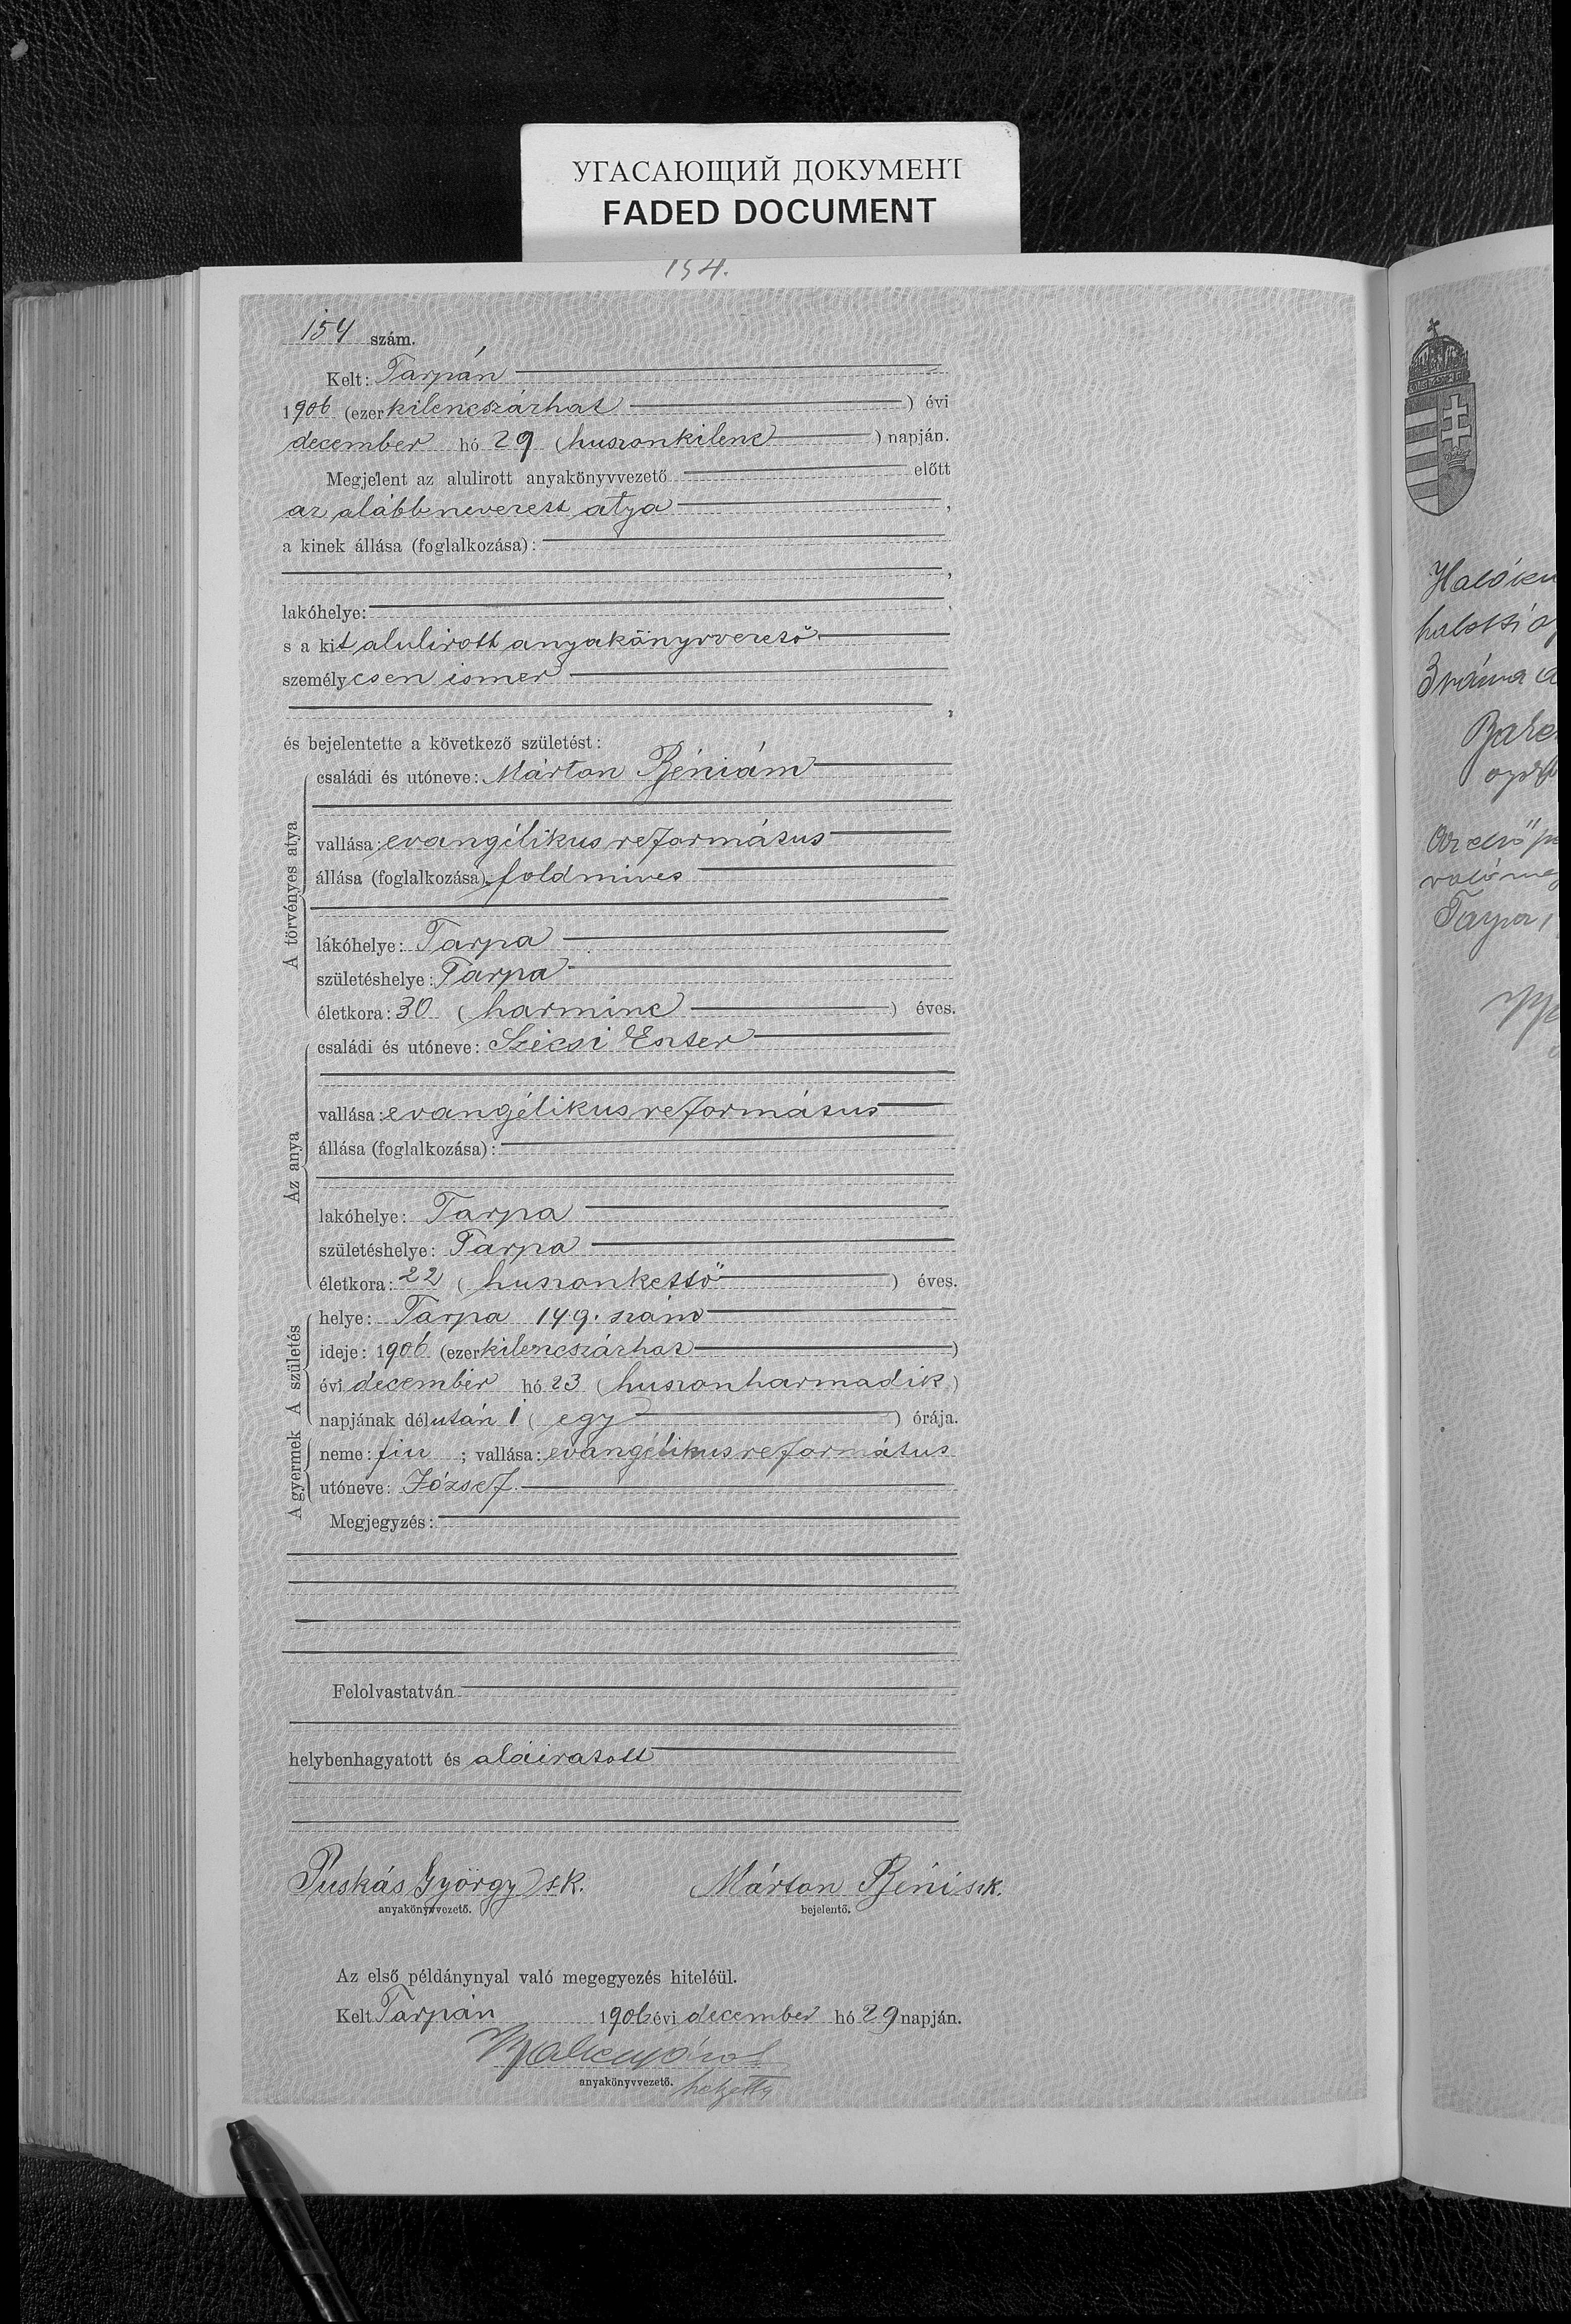 УГАСАЮЩИЙ ДОКУМЕНТ
FADED DOCUMENT
154.
154 szám.
Kelt: Tarpán
1906 (ezer kilencszázhat) évi
december hó 29 (huszonkilenc) napján.
Megjelent az alulirott anyakönyvvezető előtt
az alább nevezett atya,
a kinek állása (foglalkozása):
,
lakóhelye: ,
s a kit alulirott anyakönyvvezető
személyesen ismer
,
és bejelentette a következő születést:
A törvényes atya
családi és utóneve: Márton Béniám
vallása: evangélikus református
állása (foglalkozása): földmives
lakóhelye: Tarpa
születéshelye: Tarpa
életkora: 30 (harminc) éves.
Az anya
családi és utóneve: Szécsi Eszter
vallása: evangélikus református
állása (foglalkozása):
lakóhelye: Tarpa
születéshelye: Tarpa
életkora: 22 (huszonkettő) éves.
A születés
helye: Tarpa 149. szám
ideje: 1906 (ezer kilencszázhat)
évi december hó 23 (huszonharmadik)
napjának délután 1 (egy) órája.
A gyermek
neme: fiu; vallása: evangélikus református
utóneve: József
Megjegyzés:
Felolvastatván
helybenhagyatott és aláiratott
Puskás György s.k. Márton Béni s.k.
anyakönyvvezető. bejelentő.
Az első példánynyal való megegyezés hiteléül.
Kelt Tarpán 1906 évi december hó 29 napján.
anyakönyvvezető.
Tarpa,